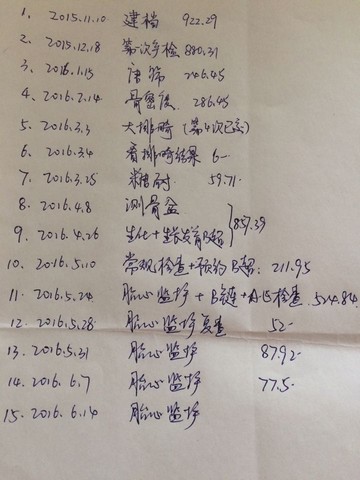 1. 2015.11.10 建档 922.29
2. 2015.12.18 第一次产检 880.31
3. 2016.1.15 唐筛 246.45
4. 2016.2.14 骨密度 286.45
5. 2016.3.3 大排畸(第4次已交)
6. 2016.3.4 看排畸结果 6-
7. 2016.3.25 糖耐 59.71-
8. 2016.4.8 测骨盆
9. 2016.4.26 生化+生长发育B超 }857.39
10. 2016.5.10 常规检查+预约B超. 211.95
11. 2016.5.24 胎心监护 + B链+ 检查. 524.84
12. 2016.5.28 胎心监护复查 52-
13. 2016.5.31 胎心监护 87.92-
14. 2016.6.7 胎心监护 77.5-
15. 2016.6.14 胎心监护